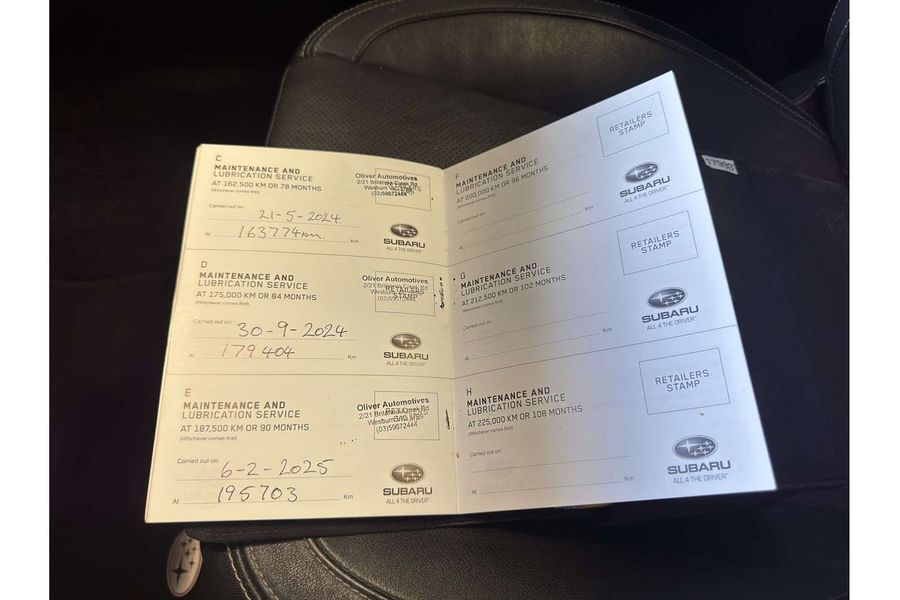 C
MAINTENANCE AND
LUBRICATION SERVICE
AT 162,500 KM OR 78 MONTHS
(Whichever comes first)
Carried out on:
21-5-2024
At 163774km. Km
Oliver Automotives
(03)59672444
SUBARU
ALL 4 THE DRIVER
D
MAINTENANCE AND
LUBRICATION SERVICE
AT 175,000 KM OR 84 MONTHS
(Whichever comes first)
Carried out on:
30-9-2024
At 179404 Km
Oliver Automotives
RETAILERS
STAMP
SUBARU
ALL 4 THE DRIVER
E
MAINTENANCE AND
LUBRICATION SERVICE
AT 187,500 KM OR 90 MONTHS
(Whichever comes first)
Carried out on:
6-2-2025
At 195703 Km
Oliver Automotives
(03)59672444
SUBARU
ALL 4 THE DRIVER
F
MAINTENANCE AND
LUBRICATION SERVICE
AT 200,000 KM OR 96 MONTHS
(Whichever comes first)
Carried out on:
At Km
RETAILERS
STAMP
SUBARU
ALL 4 THE DRIVER
G
MAINTENANCE AND
LUBRICATION SERVICE
AT 212,500 KM OR 102 MONTHS
(Whichever comes first)
Carried out on:
At Km
RETAILERS
STAMP
SUBARU
ALL 4 THE DRIVER
H
MAINTENANCE AND
LUBRICATION SERVICE
AT 225,000 KM OR 108 MONTHS
(Whichever comes first)
Carried out on:
At Km
RETAILERS
STAMP
SUBARU
ALL 4 THE DRIVER